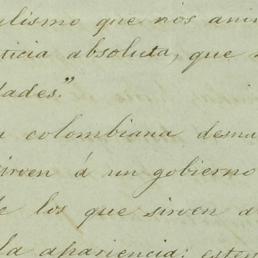 ulismo que nos anim
ticia absoluta, que n
dades."
n colombiana dema
sirven á un gobierno
de los que sirven a
la apariencia; esten